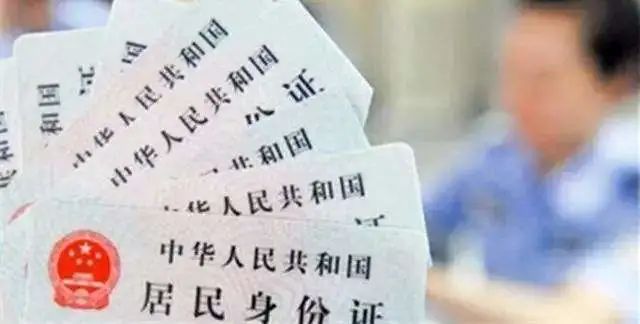 和国
中华人民共和国
中华人民共和国
份证
中华人民共和国
中华人民共和国
中华人民共和国
居民身份证